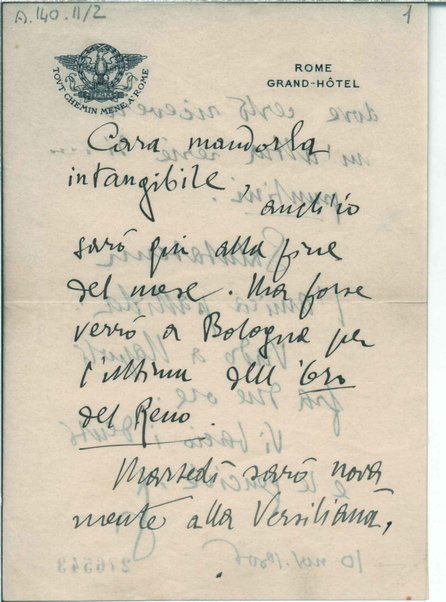 A.140.11/2
1
TOVT CHEMIN MENE A ROME
ROME
GRAND-HÔTEL
Cara mandorla
intangibile,
anch'io
sarò qui alla fine
del mese. Ma forse
verrò a Bologna per
l'ultima dell'Oro
del Reno.
Martedì sarò nova
mente alla Versiliana,
276543